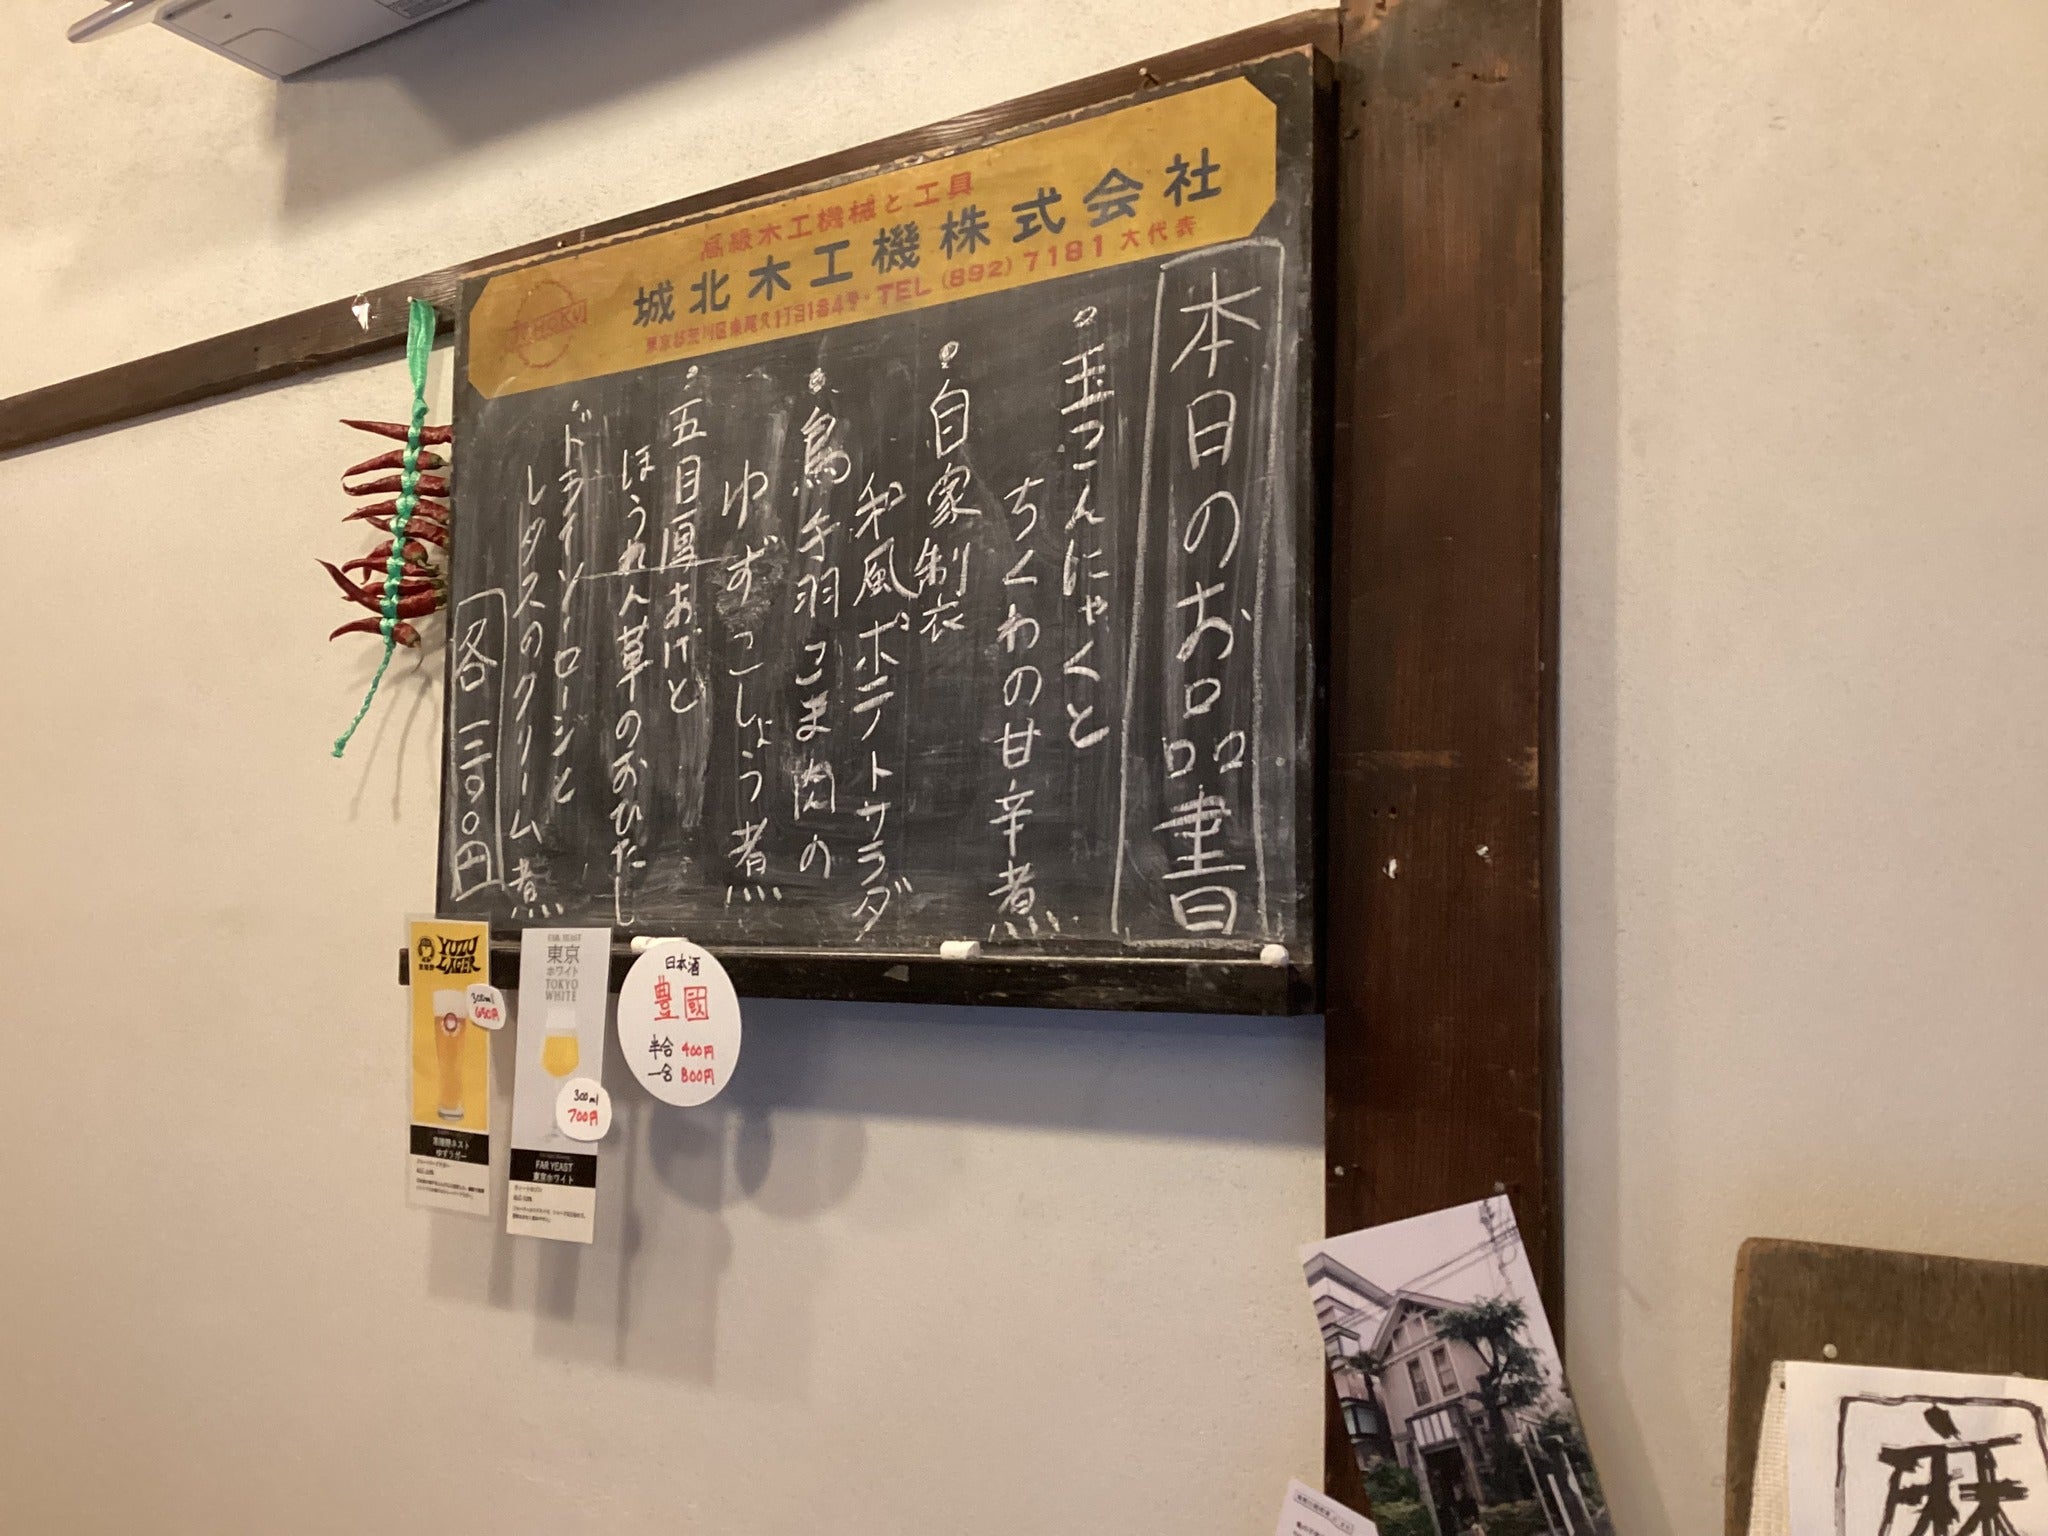 高級木工機械と工具
城北木工機株式会社
東京都荒川区東尾久1丁目 TEL (892) 7181 大代表
本日のお品書
・玉こんにゃくと
ちくわの甘辛煮
・自家製
和風ポテトサラダ
・鳥手羽こま肉の
ゆずこしょう煮
・五目厚あげと
ほうれん草のおひたし
・ドライソーローンと
レタスのクリーム煮
各 三九〇円
YUZU
LAGER
300ml
690円
常陸野ネスト
ゆずラガー
FAR YEAST
東京
ホワイト
TOKYO
WHITE
300ml
700円
FAR YEAST
東京ホワイト
日本酒
豊國
半合 400円
一合 800円
麻